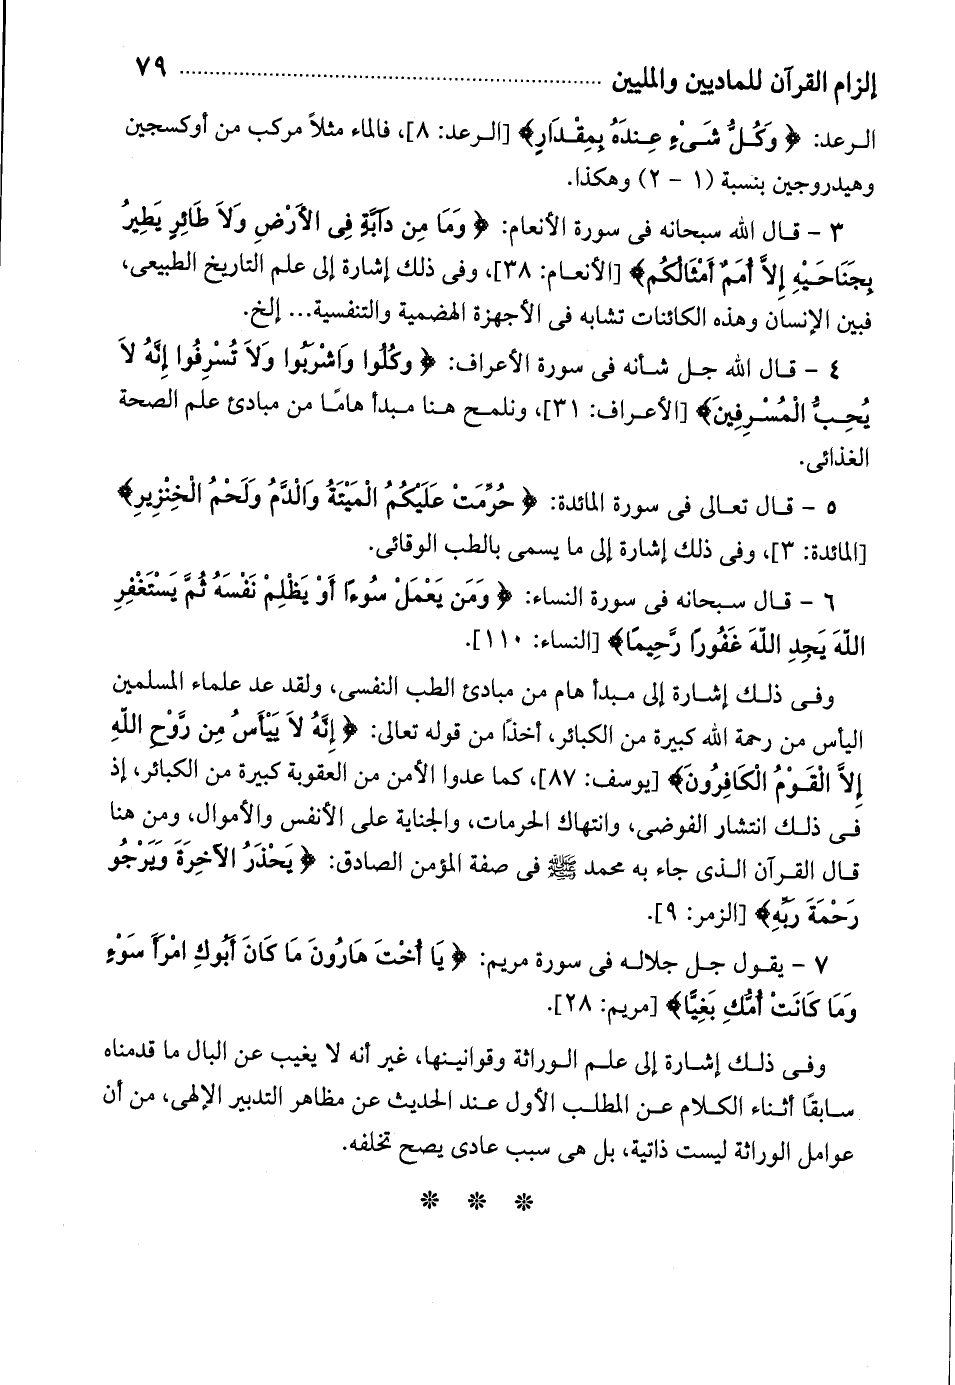 إلزام القرآن للماديين والمليين ........................................ ٧٩
الرعد: ﴿ وَكُلُّ شَىْءٍ عِندَهُ بِمِقْدَارٍ﴾ [الرعد: ٨]، فالماء مثلاً مركب من أوكسجين
وهيدروجين بنسبة (١ - ٢) وهكذا.
٣ - قال الله سبحانه فى سورة الأنعام: ﴿ وَمَا مِن دَآبَّةٍ فِى الأَرْضِ وَلاَ طَائِرٍ يَطِيرُ
بِجَنَاحَيْهِ إِلاَّ أُمَمٌ أَمْثَالُكُم﴾ [الأنعام: ٣٨]، وفى ذلك إشارة إلى علم التاريخ الطبيعى،
فبين الإنسان وهذه الكائنات تشابه فى الأجهزة الهضمية والتنفسية... إلخ.
٤ - قال الله جل شأنه فى سورة الأعراف: ﴿ وكُلُوا وَاشْرَبُوا وَلاَ تُسْرِفُوا إِنَّهُ لاَ
يُحِبُّ الْمُسْرِفِينَ﴾ [الأعراف: ٣١]، ونلمح هنا مبدأ هامًا من مبادئ علم الصحة
الغذائى.
٥ - قال تعالى فى سورة المائدة: ﴿ حُرِّمَتْ عَلَيْكُمُ الْمَيْتَةُ وَالْدَّمُ وَلَحْمُ الْخِنْزِيرِ﴾
[المائدة: ٣]، وفى ذلك إشارة إلى ما يسمى بالطب الوقائى.
٦ - قال سبحانه فى سورة النساء: ﴿ وَمَن يَعْمَلْ سُوءًا أَوْ يَظْلِمْ نَفْسَهُ ثُمَّ يَسْتَغْفِرِ
اللّهَ يَجِدِ اللّهَ غَفُورًا رَّحِيمًا﴾ [النساء: ١١٠].
وفى ذلك إشارة إلى مبدأ هام من مبادئ الطب النفسى، ولقد عد علماء المسلمين
اليأس من رحمة الله كبيرة من الكبائر، أخذًا من قوله تعالى: ﴿ إِنَّهُ لاَ يَيْأَسُ مِن رَّوْحِ اللّهِ
إِلاَّ الْقَوْمُ الْكَافِرُونَ﴾ [يوسف: ٨٧]، كما عدوا الأمن من العقوبة كبيرة من الكبائر، إذ
فى ذلك انتشار الفوضى، وانتهاك الحرمات، والجناية على الأنفس والأموال، ومن هنا
قال القرآن الذى جاء به محمد ﷺ فى صفة المؤمن الصادق: ﴿ يَحْذَرُ الآخِرَةَ وَيَرْجُو
رَحْمَةَ رَبِّهِ﴾ [الزمر: ٩].
٧ - يقول جل جلاله فى سورة مريم: ﴿ يَا أُخْتَ هَارُونَ مَا كَانَ أَبُوكِ امْرَأَ سَوْءٍ
وَمَا كَانَتْ أُمُّكِ بَغِيًّا﴾ [مريم: ٢٨].
وفى ذلك إشارة إلى علم الوراثة وقوانينها، غير أنه لا يغيب عن البال ما قدمناه
سابقًا أثناء الكلام عن المطلب الأول عند الحديث عن مظاهر التدبير الإلهى، من أن
عوامل الوراثة ليست ذاتية، بل هى سبب عادى يصح تخلفه.
❊ ❊ ❊